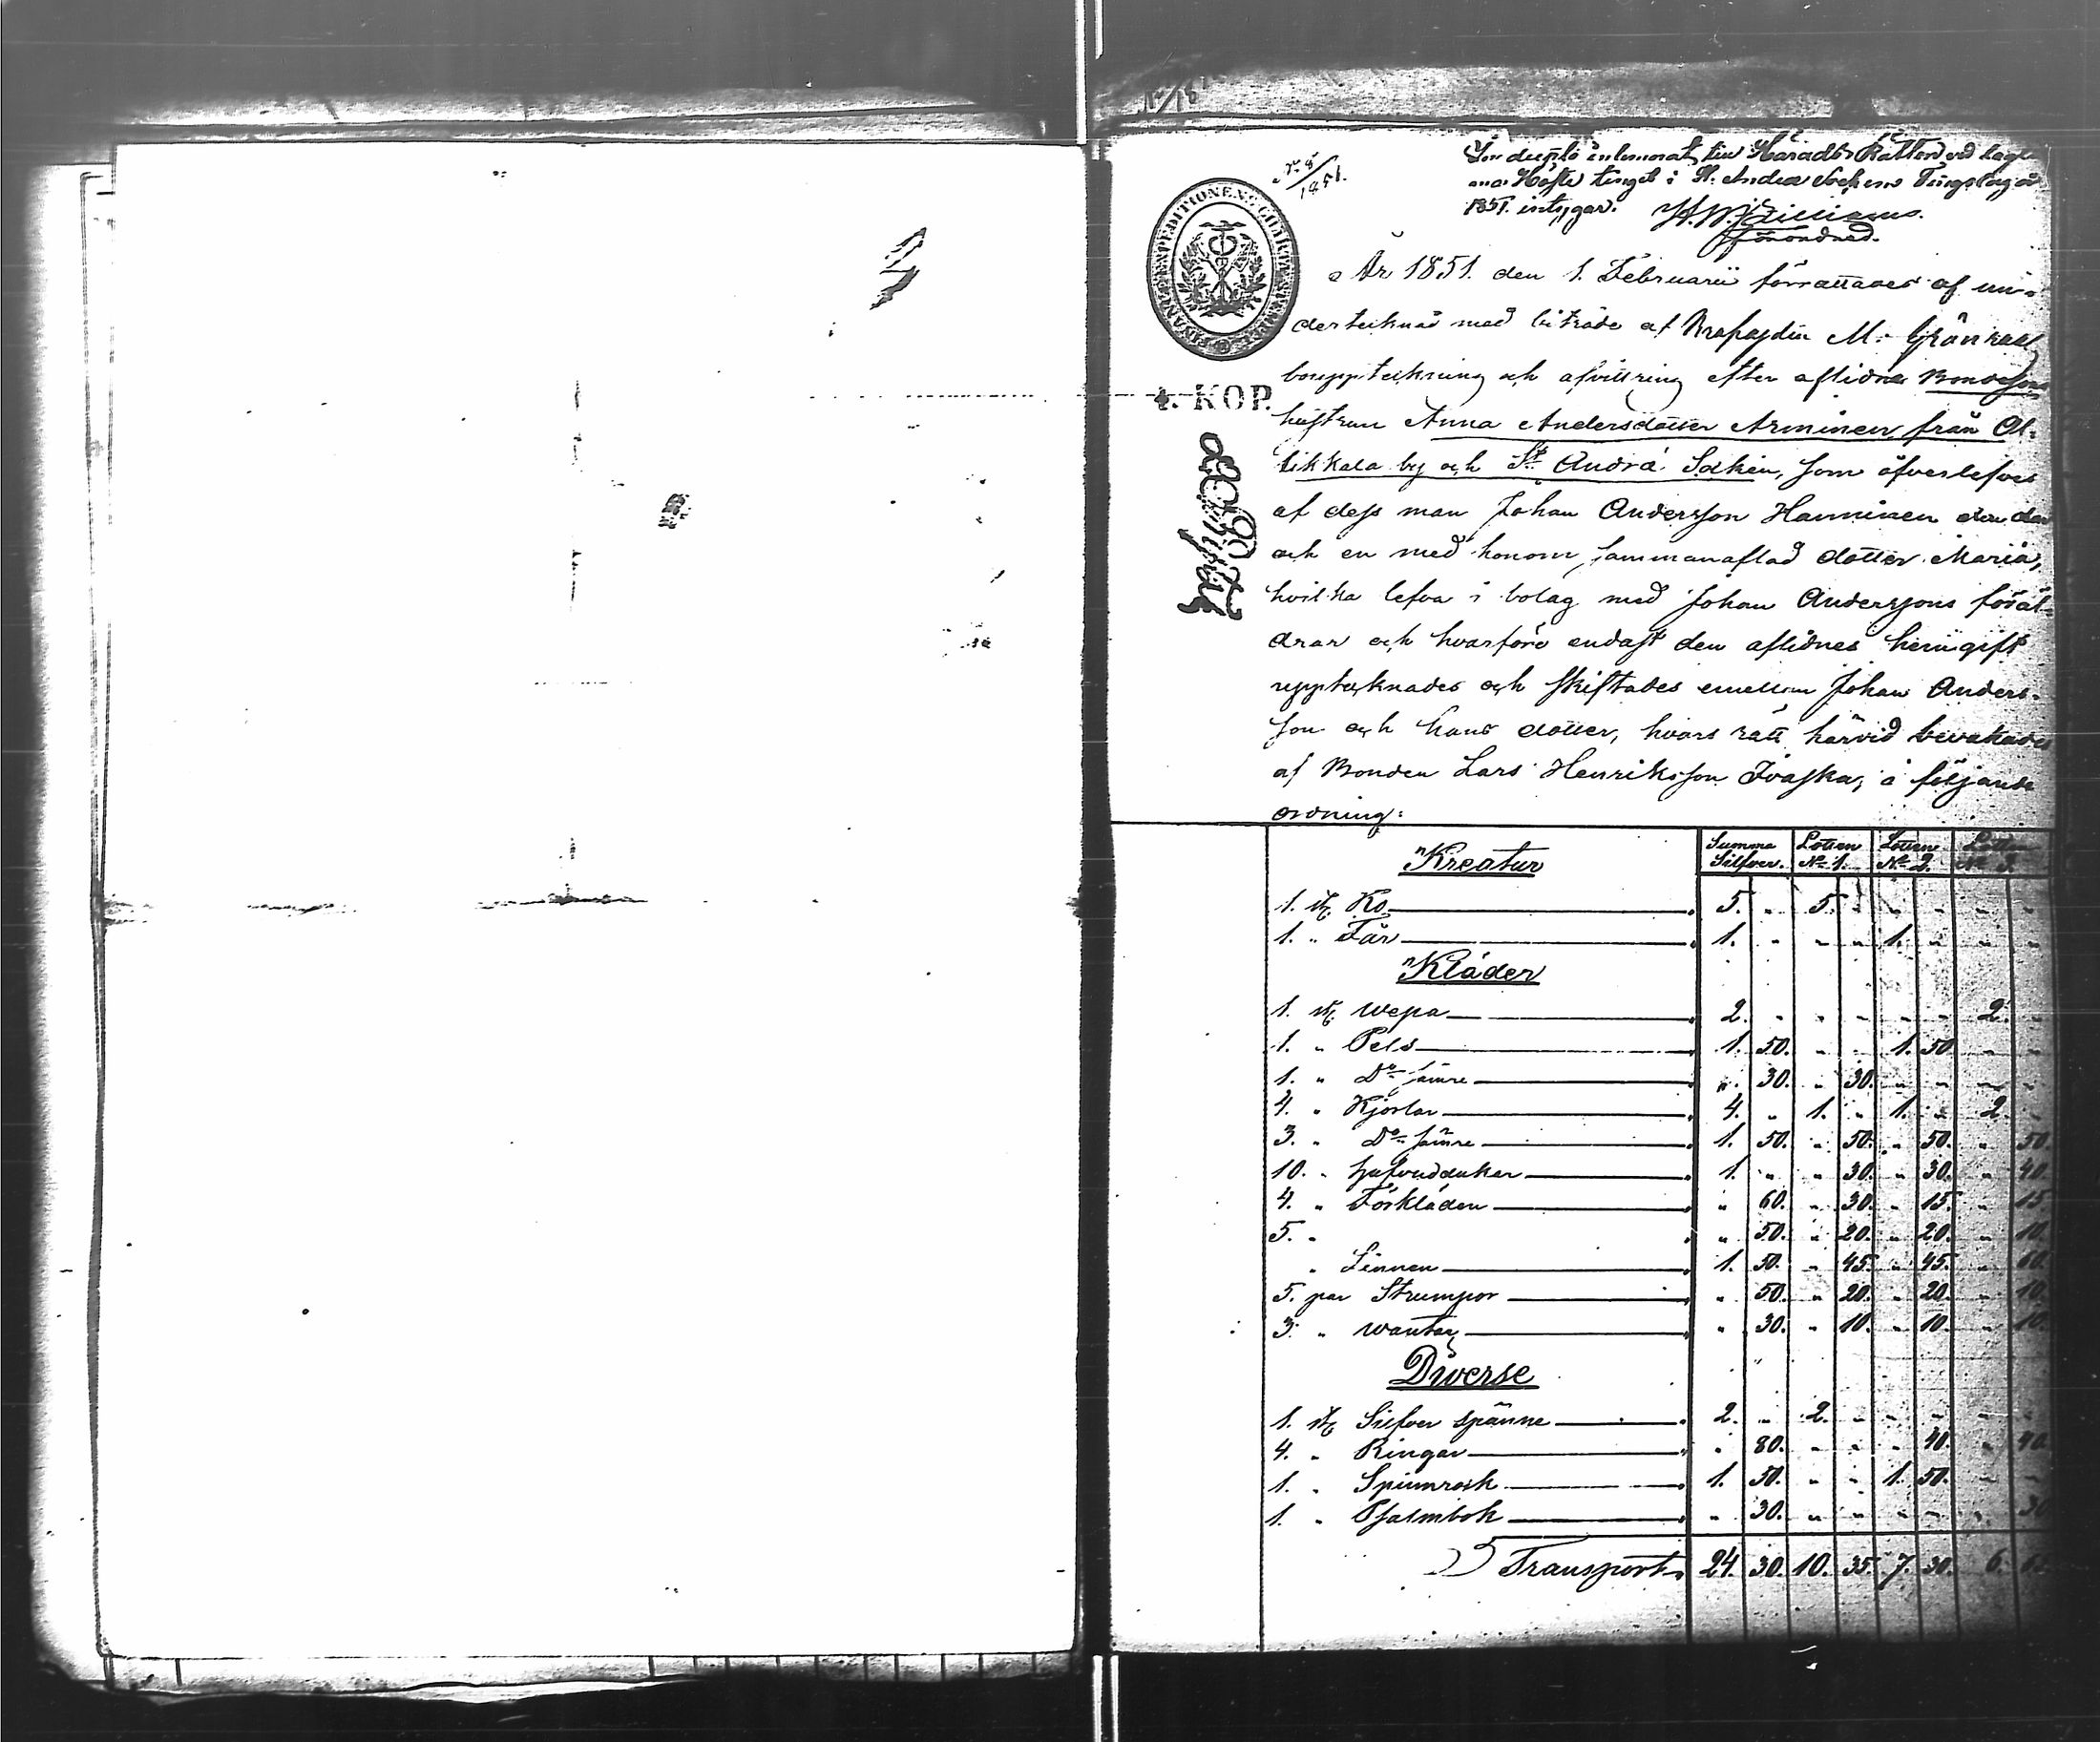 N:o 8/1851.
In duplo inlemnat till Härads Rätten vid lagti-
ma Höste tinget i St. Andreæ Sockens Tingslag år
1851. intygar.
förordnad.
FINANCE EXPEDITIONENS CHARTÆ
4. KOP.
År 1851. den 1. Februarii förrättades af un-
dertecknad med biträde af M. Grönvall
bouppteckning och afvittring efter aflidna Bondesons
hustrun Anna Andersdotter Arminen från Ol-
likkala by och St Andræ Sokn, som öfverlefves
af dess man Johan Andersson Hanninen
och en med honom sammanaflad dotter Maria,
hvilka lefva i bolag med Johan Anderssons föräl-
drar och hvarföre endast den aflidnes hemgift
upptecknades och skiftades emellan Johan Anders-
son och hans dotter, hvars rätt härvid bevakades
af Bonden Lars Henriksson Ivaska, i följande
ordning:
Kreatur Summa Silfver. Lotten No 1. Lotten No 2. Lotten No 3.
1. st. Ko 5. " 5. " " " " "
1. " Får 1. " " " 1. " " "
Kläder
1. st. Wepa 2. " " " " " 2. "
1. " Pels 1. 50. " " 1. 50. " "
1. " Do sämre " 30. " 30. " " " "
4. " Kjortlar 4. " 1. " 1. " 2. "
3. " Do sämre 1. 50. " 50. " 50. " 50.
10. " Hufvuddukar 1. " " 30. " 30. " 40.
4. " Förkläden " 60. " 30. " 15. " 15.
5. " " 50. " 20. " 20. " 10.
" Linnen 1. 50. " 45. " 45. " 60.
5. par Strumpor " 50. " 20. " 20. " 10.
3. " Wantar " 30. " 10. " 10. " 10.
Diverse
1. st. Silfver spänne 2. " 2. " " " " "
4. " Ringar " 80. " " " 40. " 40.
1. " Spinnrock 1. 50. " " 1. 50. " "
1. " Psalmbok " 30. " " " " " 30
Transport 24. 30. 10. 35. 7. 30. 6. 6